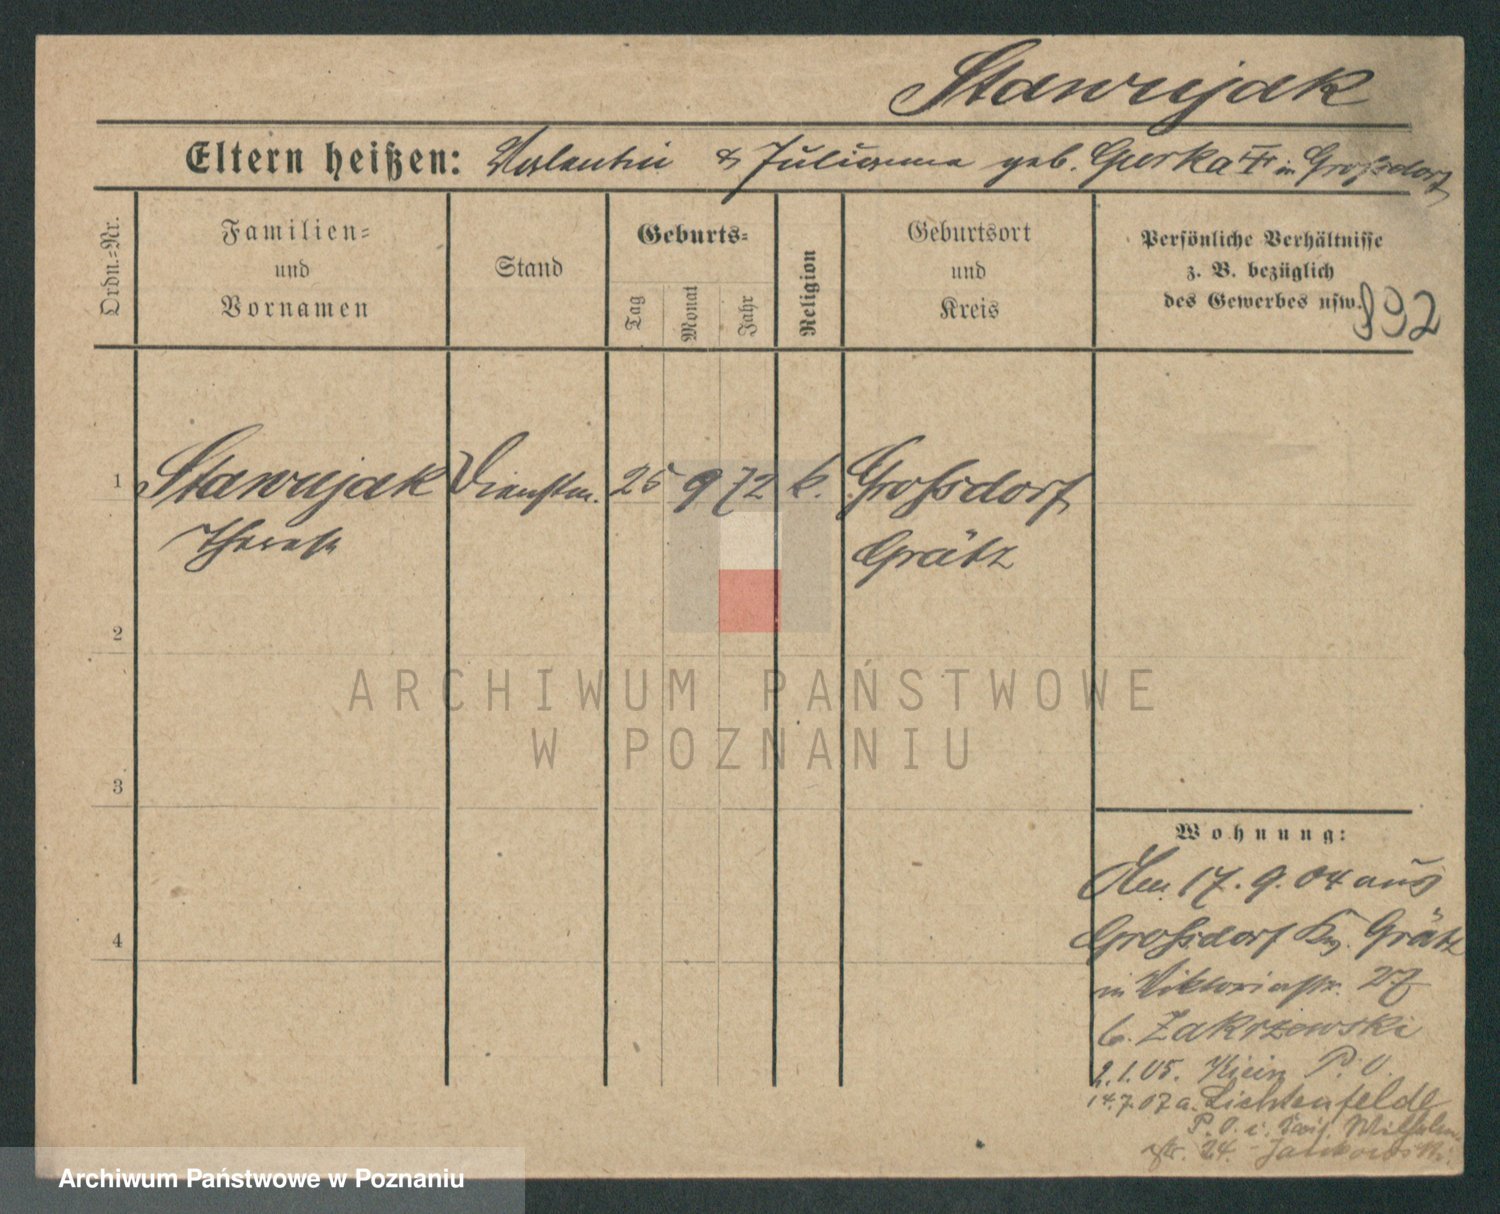 Stawujak
Eltern heißen: Valentin & Julianna geb. Gurka in Großdorf
Ordn.-Nr.
Familien-
und
Vornamen
Stand
Geburts-
Tag
Monat
Jahr
Religion
Geburtsort
und
Kreis
Persönliche Verhältnisse
z. B. bezüglich
des Gewerbes usw.
892
1 Stawujak Dienstm. 25 9 72 k. Großdorf
Therese Grätz
2
3
4
Wohnung:
Den 17. 9. 04 aus
Großdorf Grätz
in Viktoriastr. 27
b. Zakrzewski
2.1.05. P. O.
14.7.07 a. Lichtenfelde
P. O. i. Wilhelm
str. 24. Jankowski
ARCHIWUM PAŃSTWOWE
W POZNANIU
Archiwum Państwowe w Poznaniu